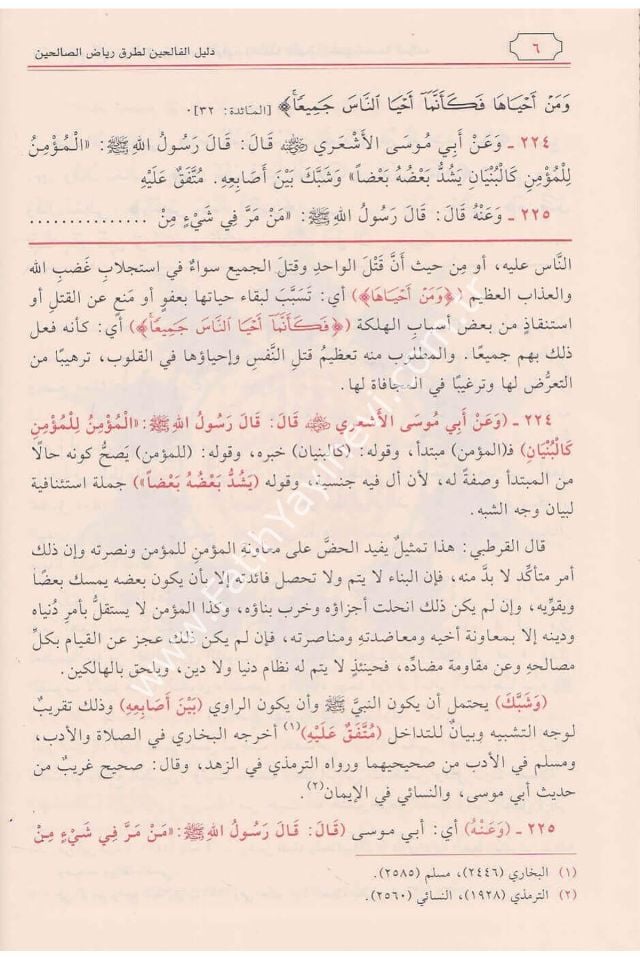 ٦
دليل الفالحين لطرق رياض الصالحين
وَمَنْ أَحْيَاهَا فَكَأَنَّمَا أَحْيَا النَّاسَ جَمِيعًا﴾ [المائدة: ٣٢].
٢٢٤ ـ وَعَنْ أَبِي مُوسَى الأَشْعَرِي ﷺ قَالَ: قَالَ رَسُولُ اللهِ ﷺ: «الْمُؤْمِنُ
لِلْمُؤْمِنِ كَالْبُنْيَانِ يَشُدُّ بَعْضُهُ بَعْضاً» وَشَبَّكَ بَيْنَ أَصَابِعِهِ. مُتَّفَقٌ عَلَيْهِ
٢٢٥ ـ وَعَنْهُ قَالَ: قَالَ رَسُولُ اللهِ ﷺ: «مَنْ مَرَّ فِي شَيْءٍ مِنْ ................
النَّاس عليه، أو مِن حيث أنَّ قَتْلَ الواحدِ وقتلَ الجميع سواءٌ في استجلابِ غَضبِ الله
والعذاب العظيم (﴿وَمَنْ أَحْيَاهَا﴾) أي: تَسَبَّبَ لبقاء حياتها بعفوٍ أو مَنعٍ عن القتلِ أو
استنقاذٍ من بعض أسبابِ الهلكة (﴿فَكَأَنَّمَا أَحْيَا النَّاسَ جَمِيعًا﴾) أي: كأنه فعل
ذلك بهم جميعًا. والمطلوب منه تعظيمُ قتلِ النَّفسِ وإحياؤها في القلوب، ترهيبًا من
التعرُّض لها وترغيبًا في المحافاة لها.
٢٢٤ ـ (وَعَنْ أَبي مُوسَى الأَشْعَري ﷺ قَالَ: قَالَ رَسُولُ اللهِ ﷺ: «الْمُؤْمِنُ لِلْمُؤْمِنِ
كَالْبُنْيَانِ) فـ(المؤمن) مبتدأ، وقوله: (كالبنيان) خبره، وقوله: (للمؤمن) يَصحُّ كونه حالًا
من المبتدأ وصفةً له، لأن أل فيه جنسية، وقوله (يَشُدُّ بَعْضُهُ بَعْضاً») جملة استئنافية
لبيان وجه الشبه.
قال القرطبي: هذا تمثيلٌ يفيد الحضّ على معاونةِ المؤمنِ للمؤمن ونصرته وإن ذلك
أمر متأكّد لا بدَّ منه، فإن البناء لا يتم ولا تحصل فائدته إلا بأن يكون بعضه يمسك بعضًا
ويقوِّيه، وإن لم يكن ذلك انحلت أجزاؤه وخرب بناؤه، وكذا المؤمن لا يستقلُّ بأمرِ دُنياه
ودينه إلا بمعاونة أخيه ومعاضدتهِ ومناصرته، فإن لم يكن ذلك عجز عن القيام بكلِّ
مصالحهِ وعن مقاومة مضادِّه، فحينئذٍ لا يتم له نظام دنيا ولا دين، ويلحق بالهالكين.
(وَشَبَّكَ) يحتمل أن يكون النبيَّ ﷺ وأن يكون الراوي (بَيْنَ أَصَابِعِهِ) وذلك تقريبٌ
لوجه التشبيه وبيانٌ للتداخل (مُتَّفَقٌ عَلَيْهِ)(١) أخرجه البخاري في الصلاة والأدب،
ومسلم في الأدب من صحيحيهما ورواه الترمذي في الزهد، وقال: صحيح غريبٌ من
حديث أبي موسى، والنسائي في الإيمان(٢).
٢٢٥ ـ (وَعَنْهُ) أي: أبي موسى (قَالَ: قَالَ رَسُولُ اللهِ ﷺ: «مَنْ مَرَّ فِي شَيْءٍ مِنْ
(١) البخاري (٢٤٤٦)، مسلم (٢٥٨٥).
(٢) الترمذي (١٩٢٨)، النسائي (٢٥٦٠).
www.FatihYayinevi.com.tr